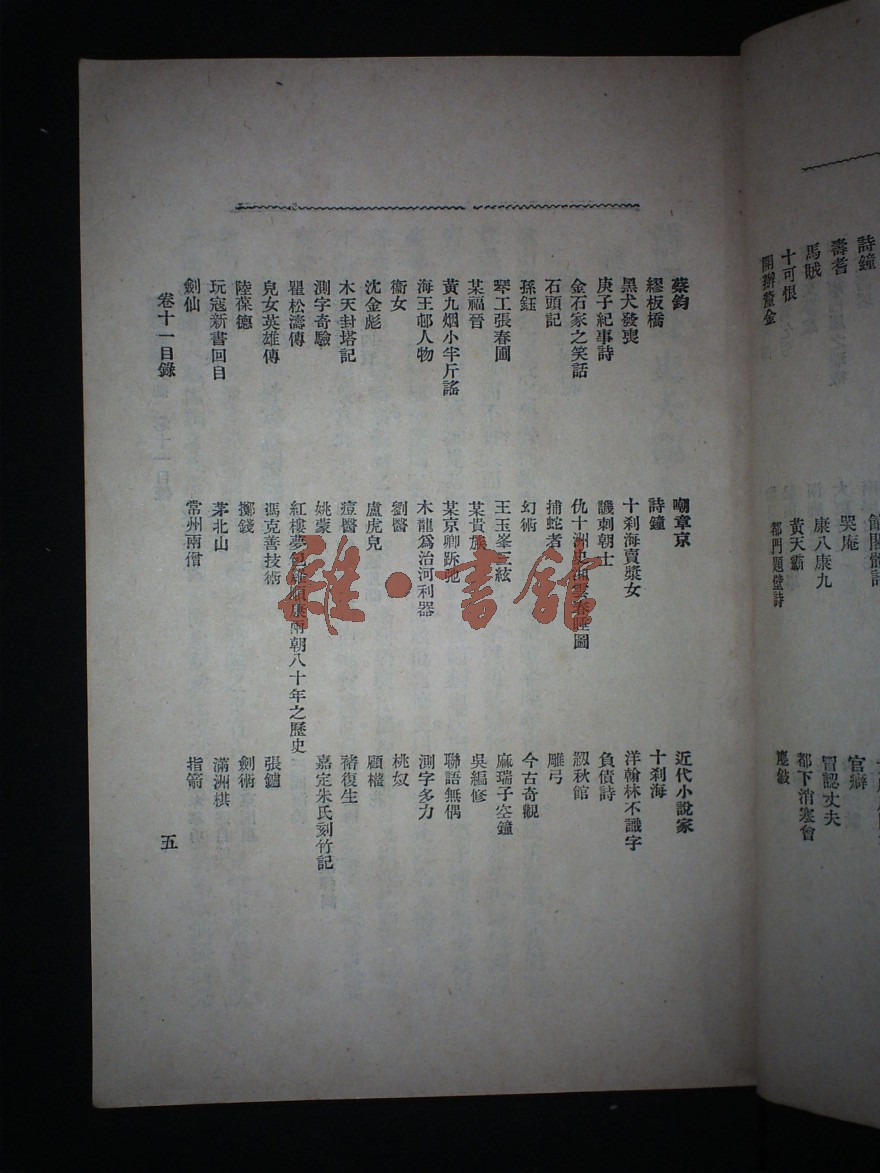 詩鐘
壽耆 哭庵 官癖
馬賊 康八康九 冒認丈夫
十可恨 黃天霸 都下消寒會
開辦釐金 都門題壁詩
蔡鈞 嘲章京 近代小說家
繆板橋 詩鐘 十刹海
黑犬發喪 十刹海賣漿女 洋翰林不識字
庚子紀事詩 譏刺朝士 負債詩
金石家之笑話 仇十洲史湘雲春睡圖 秋館
石頭記 捕蛇者 雕弓
孫鈺 幻術 今古奇觀
琴工張春圃 王玉峯三絃 麻瑞子空鐘
某福晉 某貴族 吳編修
黃九烟小半斤謠 某京卿跴地 聯語無偶
海王邨人物 木龍爲治河利器 測字多力
衞女 劉醫 桃奴
沈金彪 盧虎兒 顧權
木天封塔記 痘醫 褚復生
測字奇驗 姚蒙 嘉定朱氏刻竹記
瞿松濤傳 紅樓夢包羅順康兩朝八十年之歷史
兒女英雄傳 馮克善技術 張鐪
陸葆德 擲錢 劍術
玩寇新書回目 茅北山 滿洲棋
劍仙 常州兩僧 指箭
卷十一目錄 五
雜·書館